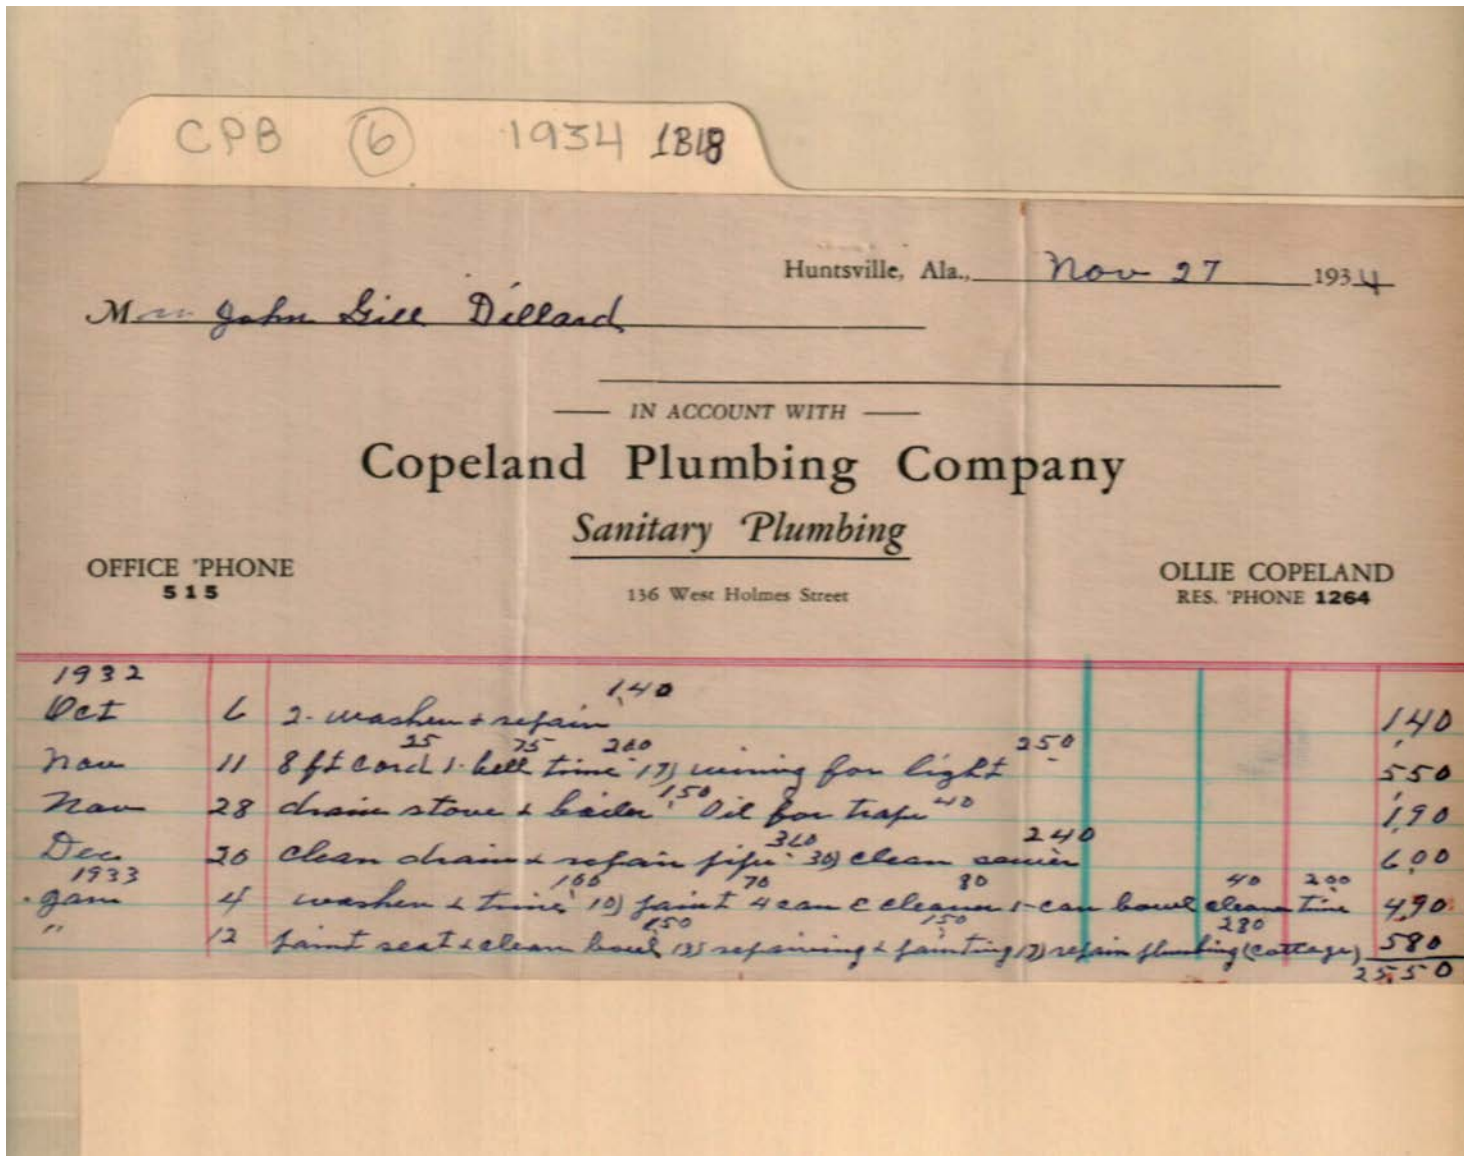 CPB 6 1934 1B18
Huntsville, Ala., Nov 27 1934
Mrs John Gill Dillard
IN ACCOUNT WITH
Copeland Plumbing Company
Sanitary Plumbing
OFFICE 'PHONE
515
136 West Holmes Street
OLLIE COPELAND
RES. 'PHONE 1264
1932
1.40
Oct 6 2- washers & repair 1.40
25 75 200 250
Nov 11 8 ft cord 1- bell time 17) wiring for light 5.50
1.50 40
Nov 28 drain stove & boiler Oil for traps 1.90
360 240
Dec 20 clean drain & repair pipe 30) clean sewer 6.00
1933
100 70 80 40 200
Jan 4 washers & time 10) paint 4 can c cleaner 1- can bowl cleaner time 4.90
150 150 280
" 12 paint seat & clean bowl 12) repairing & painting 12) repair plumbing (cottage) 5.80
25.50